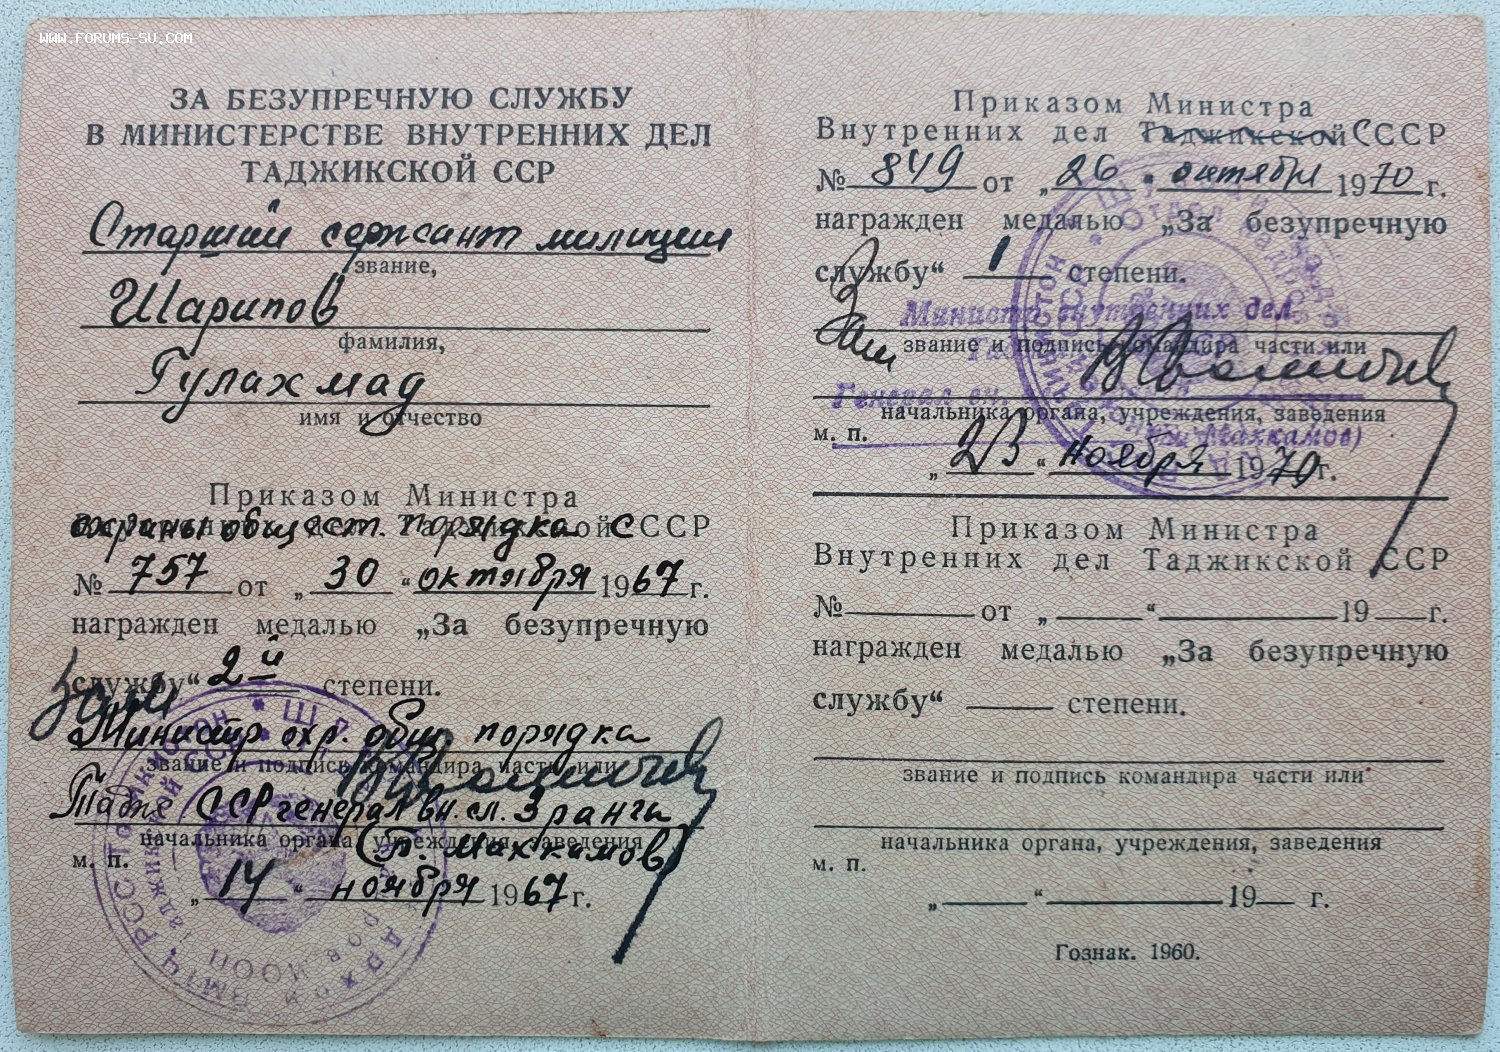 WWW.FORUMS-SU.COM
ЗА БЕЗУПРЕЧНУЮ СЛУЖБУ
В МИНИСТЕРСТВЕ ВНУТРЕННИХ ДЕЛ
ТАДЖИКСКОЙ ССР
Старший сержант милиции
звание,
Шарипов
фамилия,
Гулахмад
имя и отчество
Приказом Министра
охраны общест. порядка СССР
№ 757 от „30“ октября 1967 г.
награжден медалью „За безупречную
службу“ 2й степени.
Зам
Министр охр. общ. порядка
звание и подпись командира части или
Тадж ССР генерал вн. сл. 3 ранга
начальника органа, учреждения, заведения
(Т. Махкамов)
м. п.
„14“ ноября 1967 г.
Приказом Министра
Внутренних дел Таджикской СССР
№ 849 от „26“ октября 1970 г.
награжден медалью „За безупречную
службу“ 1 степени.
Зам
Министр внутренних дел
звание и подпись командира части или
Генерал вн.
начальника органа, учреждения, заведения
м. п.
Махкамов)
„23“ ноября 1970 г.
Приказом Министра
Внутренних дел Таджикской ССР
№ от „ “ 19 г.
награжден медалью „За безупречную
службу“ степени.
звание и подпись командира части или
начальника органа, учреждения, заведения
м. п.
„ “ 19 г.
Гознак. 1960.